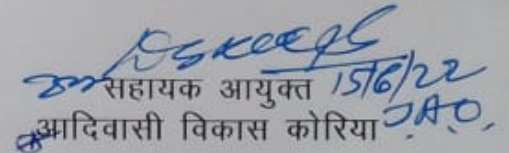 सहायक आयुक्त 15/6/22
आदिवासी विकास कोरिया J.A.O.